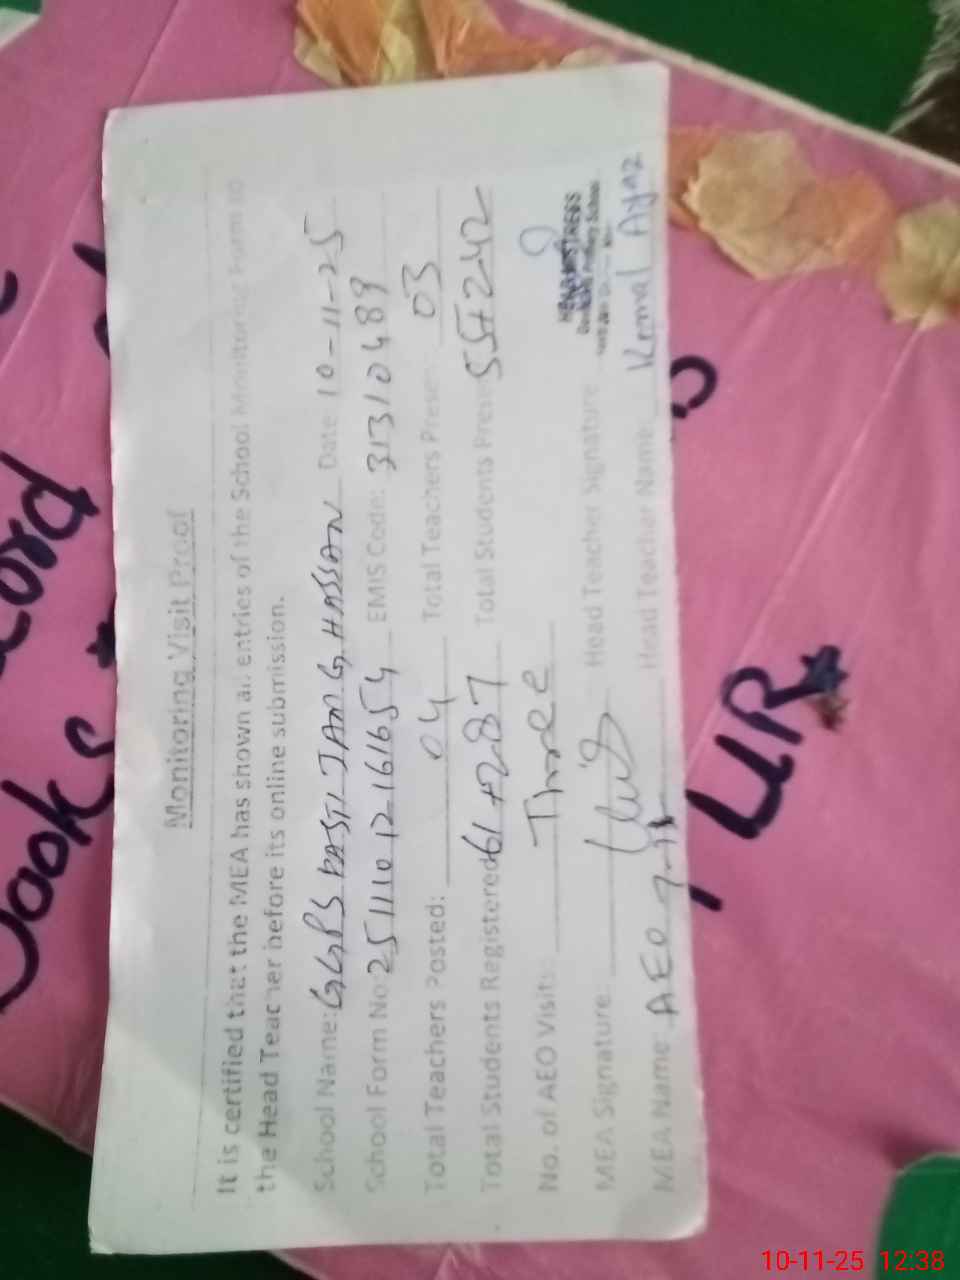 Monitoring Visit Proof
It is certified that the MEA has shown all entries of the School Monitoring Form to
the Head Teacher before its online submission.
School Name: GGPS BASTI JAM G HASSAN Date 10-11-25
School Form No: 25111012161654 EMIS Code: 31310489
Total Teachers Posted: 04 Total Teachers Present: 03
Total Students Registered: 61+287 Total Students Present: 55+242
No. of AEO Visit: Three
MEA Signature: Head Teacher Signature
HEADMISTRESS
Primary School
MEA Name: AEO Head Teacher Name: Komal Ayaz
UR
10-11-25 12:38